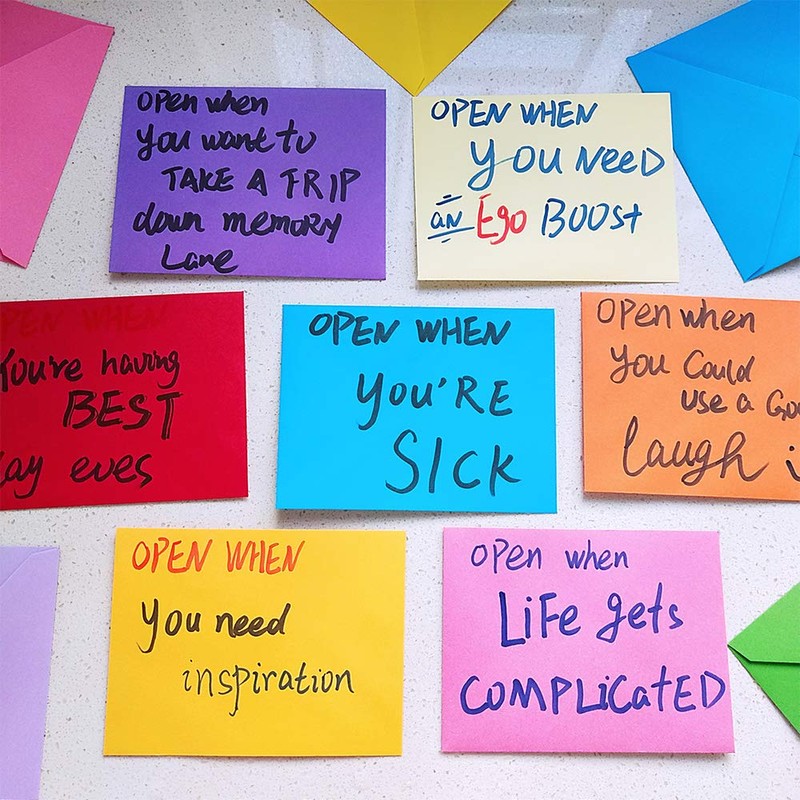 Open when
you want to
TAKE A TRIP
down memory
Lane
OPEN WHEN
you NeeD
an Ego BOOSt
OPEN WHEN
You're having
BEST
day eves
OPEN WHEN
you'RE
SICK
Open when
you Could
use a
laugh
OPEN WHEN
you need
inspiration
Open when
LiFe gets
COMPLiCatED